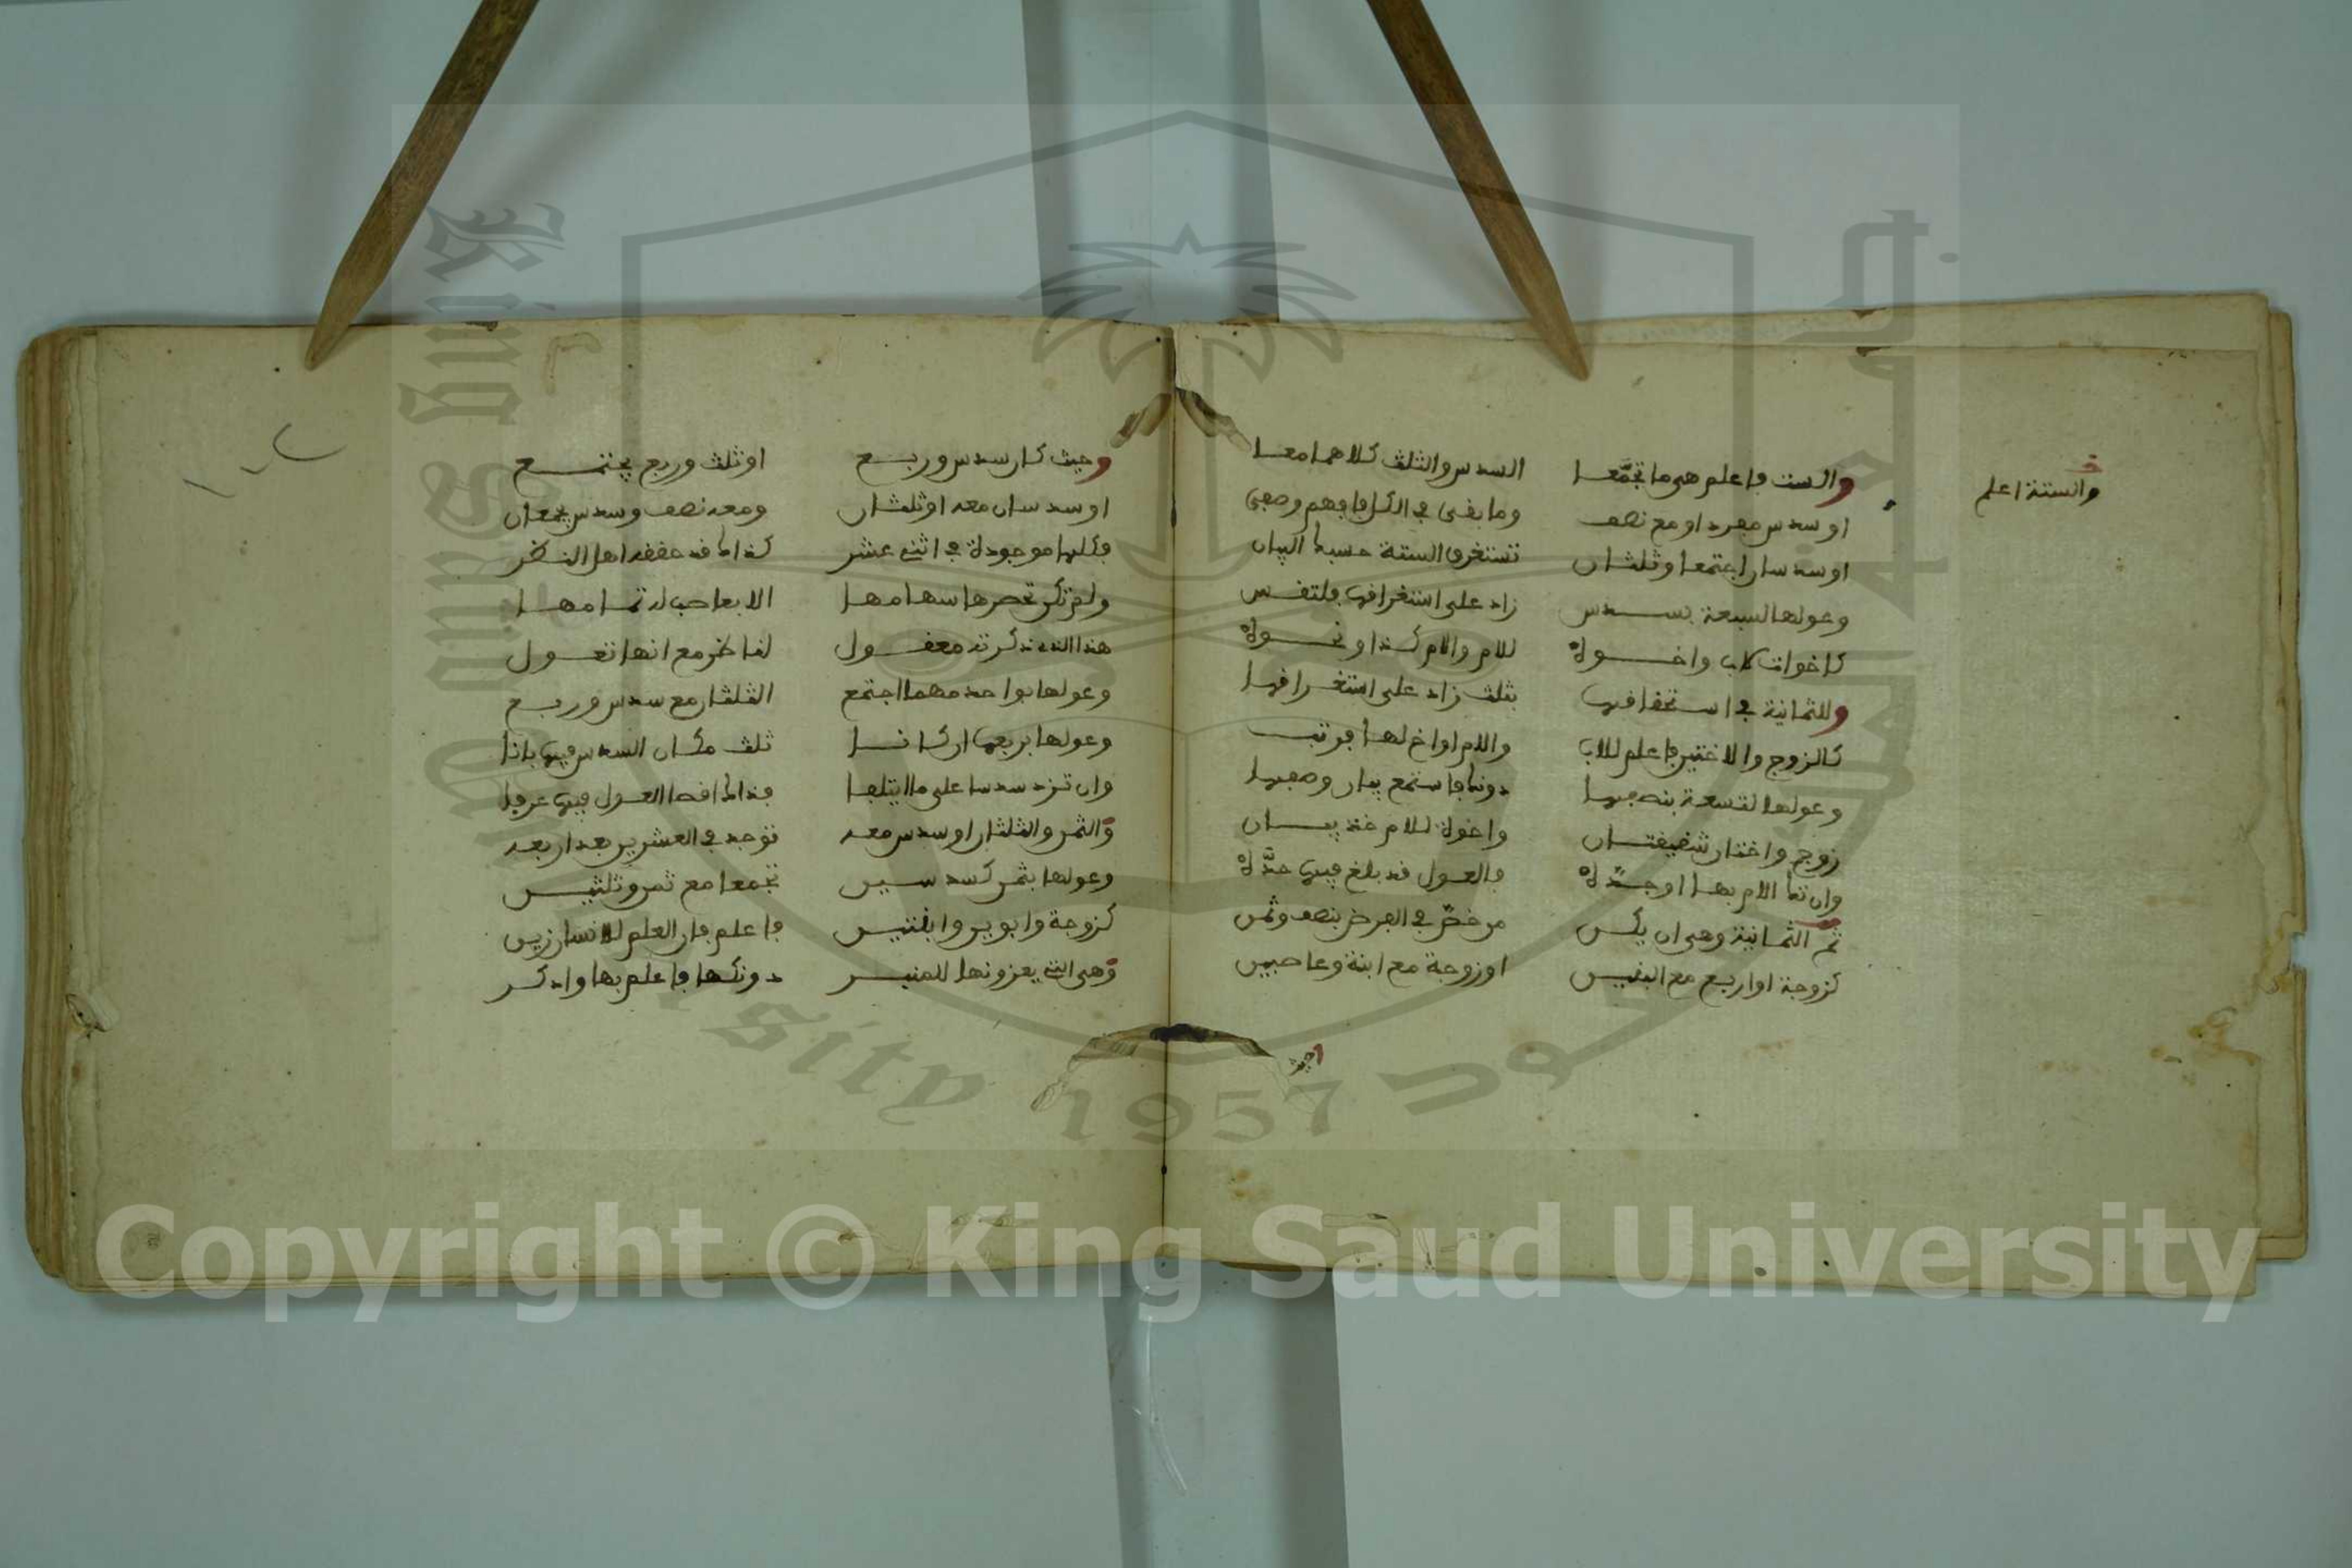 والستة اعلم
والست فاعلم هى ما تجمّعا السدس والثلث كلاهما معا
او سدس مفرد او مع نصف وما بقى فى الكل فافهم وصفى
او سدسان اجتمعا وثلثان تستغرق الستة حسبما البيان
وعولها لسبعة بسدس زاد على استغراقها فلتقس
كاخوات لاب واخوة للام والام كذا ونحوه
وللثمانية فى استحقاقها بثلث زاد على استغراقها
كالزوج والاختين فاعلم للاب والام او اخ لها فرتب
وعولها لتسعة بنصفها دونك فاستمع بيان وصفها
زوج واختان شقيقتان واخوة للام خذ بيان
وان تك الام بها او جدّة فالعول قد بلغ فيها حدّه
ثم الثمانية وهى ان يكن من خصّ فى الفرض بنصف وثمن
كزوجة او اربع مع البنتين او زوجة مع ابنة وعاصبين
وحيث
وحيث كان سدس وربع او ثلث وربع يجتمع
او سدسان معه او ثلثان ومعه نصف وسدس يجمعان
فكلها موجودة فى اثنى عشر كذاك قد حققه اهل النظر
ولم تكن تحصرها سهامها الا بعاصب له تمامها
هذا الذى ذكرته معقول لناظر مع انها تعول
وعولها بواحد مهما اجتمع الثلثان مع سدس وربع
وعولها بربعها ان كانا ثلث مكان السدس فيها بانا
وان تزد سدسا على ما يتلفا فذاك اقصا العول فيها عرفا
والثمن والثلثان او سدس معه توجد فى العشرين بعد اربعه
وعولها بثمن كسدسين تجمعا مع ثمن وثلثين
كزوجة وابوين وابنتين فاعلم فان العلم للانسان زين
وهى التى يعزونها للمنبر دونكها فاعلم بها وادكر